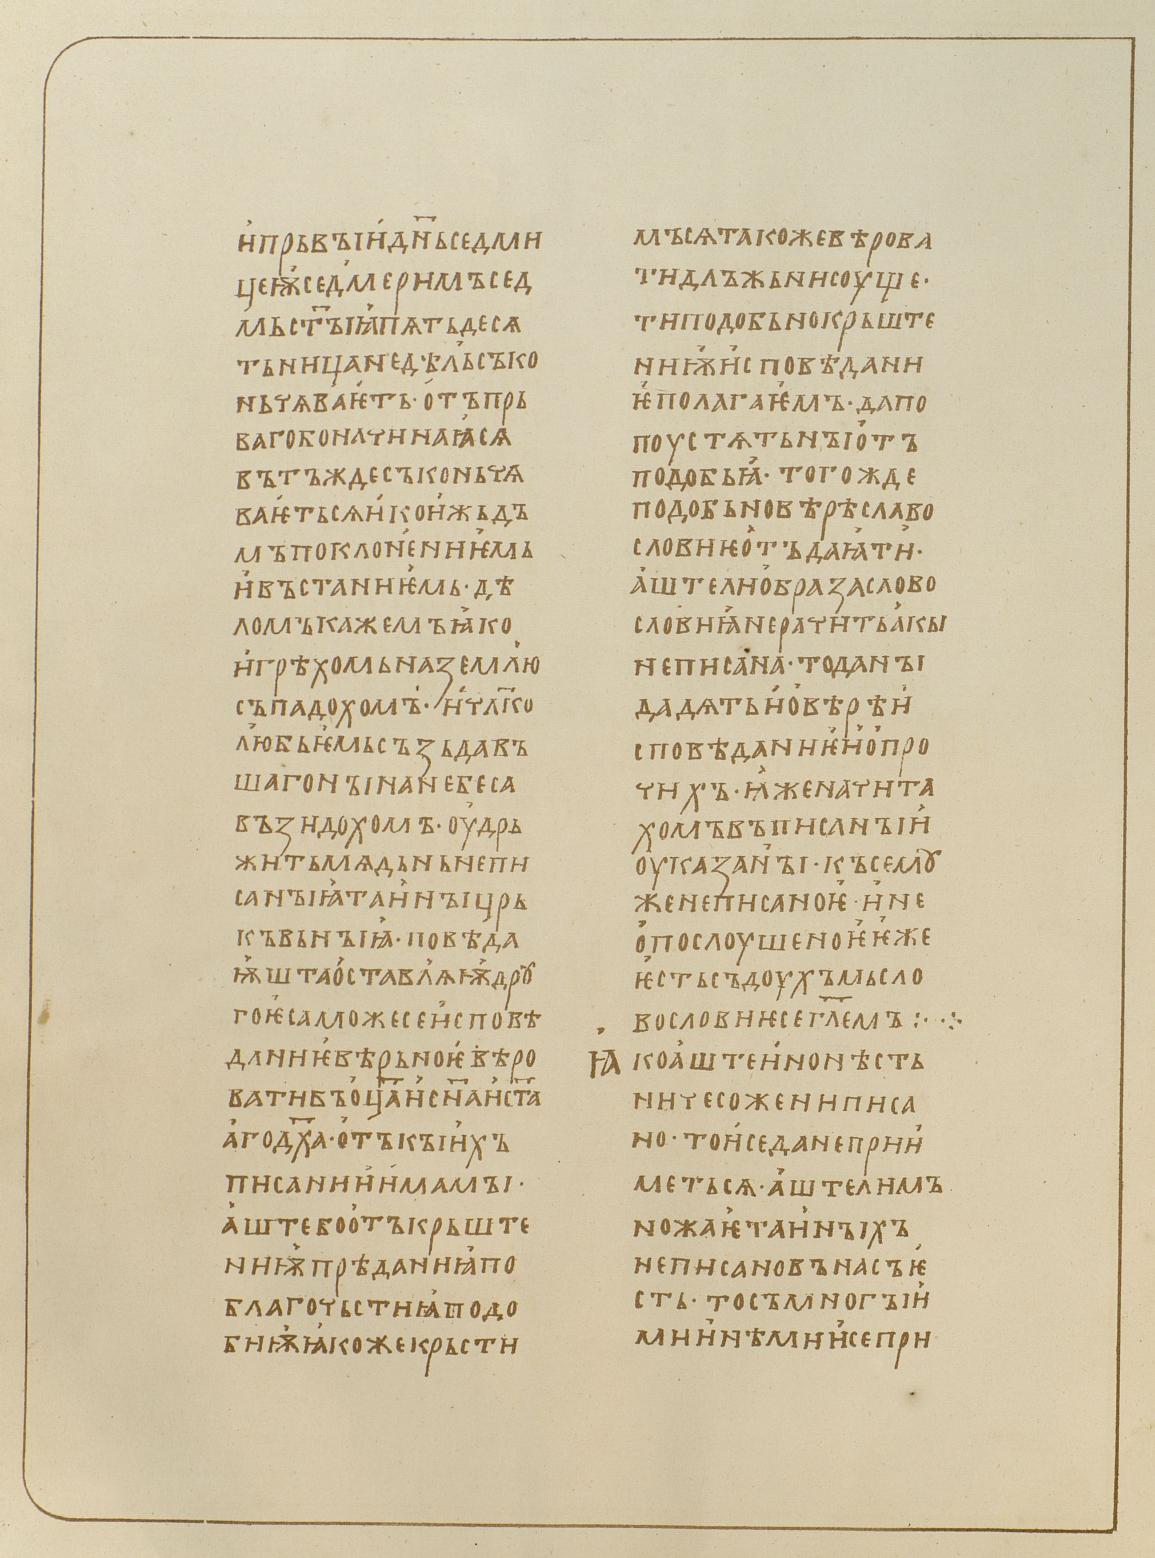 И҆прьвъіи҆дн҃ьседми
цеѭ҆седмеримъсед
мьст҃ъіꙗ҆пѧтьдесѧ
тьницанедѣл҄ьсъко
ньчѧва҆ѥ҆ть·о҆тъпрь
вагобоначинаꙗ҆сѧ
вътъждесъконьчѧ
ваѥ҆тьсѧи҆кои҆жьдъ
мъпоклонениѥ҆мь
и҆въстаниѥ҆мь·дѣ
ломькажемъꙗ҆ко
и҆грѣхомьназемл҄ю
съпадохомъ·и҆чл҃ко
л҄юбьѥ҆мьсъзьдавъ
шагонъінанебеса
възидохомъ·оу҆дрь
житьмѧдьньнепи
санъіꙗ҆таи҆нъіцрь
къвьнъіꙗ҆·повѣда
ѭ҆штао҆ставл҄ꙗѭ҆дрꙋ
гоѥ҆саможесеи҆сповѣ
даниѥ҆вѣрьноѥ҆вѣро
ватибъо҆ц҃аи҆сн҃аи҆ст҃а
а҆годх҃а·о҆тъкъіи҆хъ
писании҆и҆мамъі·
а҆штебоо҆тъкрьште
ниꙗ҆прѣданиꙗ҆по
благочьстиꙗ҆подо
биѭ҆ꙗ҆кожекрьсти
мъсѧтакожевѣрова
тидлъжьнисоуще·
типодобьнокрьште
ниѭ҆и҆сповѣдани
ѥ҆полагаѥ҆мъ·дапо
поустѧтьнъіо҆тъ
подобьꙗ҆·тогожде
подобьновѣрѣславо
словиѥо҆тъдаꙗ҆ти҆·
а҆штелио҆бразаслово
словиꙗ҆нерачитьа҆кы
неписана·тоданъі
дадѧтьи҆о҆вѣрѣи҆
сповѣданиѥ҆и҆о҆про
чихъ·ꙗ҆женачита
хомъвъписанъіи҆
оуказанъі·късемꙋ
женеписаноѥ҆·и҆не
о҆послоушеноѥ҆ѥ҆же
ѥ҆стьсъдоухъмьсло
вословиѥсегл҃емъ:·
Ꙗ҆коа҆штеи҆нонѣсть
ничесожениписа
но·тои҆седанеприи҆
метьсѧ·а҆штелимъ
ножаѥ҆таи҆нъіхъ
неписановънасъѥ҆
сть·тосъмногъіи҆
мии҆нѣмии҆сепри